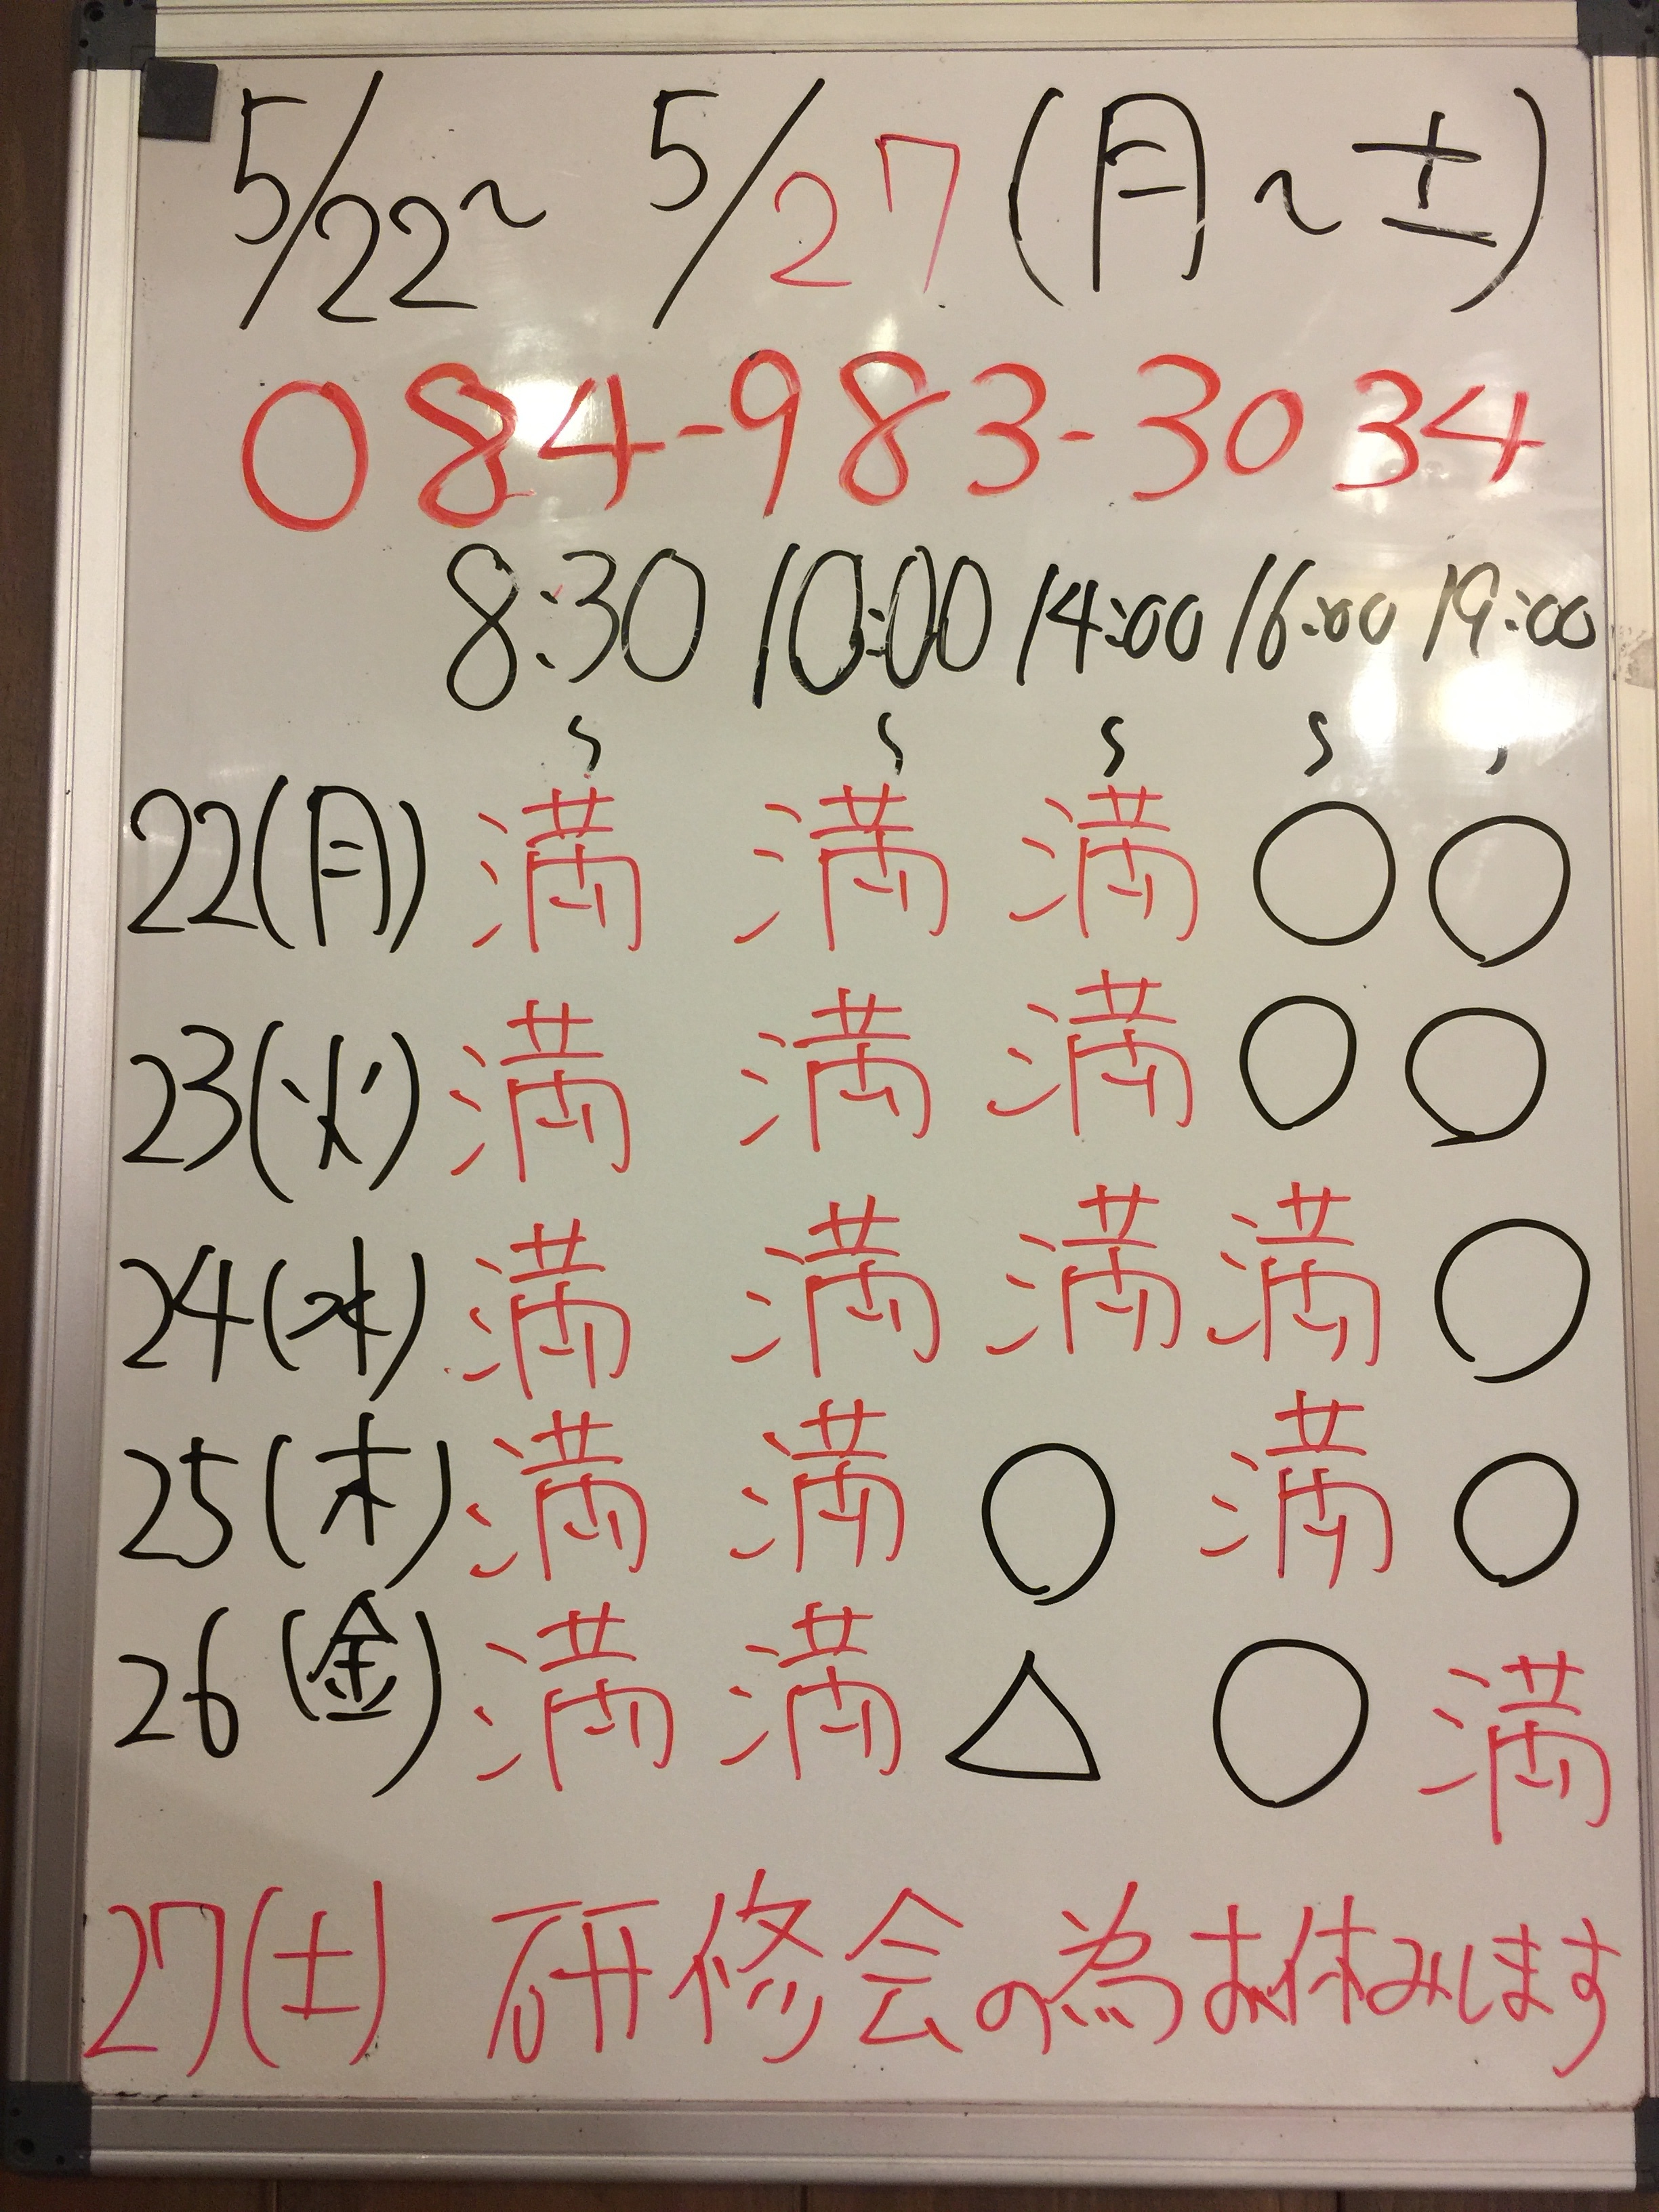 5/22～ 5/27(月～土)
084-983-3034
8:30 10:00 14:00 16:00 19:00
～ ～ ～ ～ ～
22(月) 満 満 満 ○ ○
23(火) 満 満 満 ○ ○
24(水) 満 満 満 満 ○
25(木) 満 満 ○ 満 ○
26(金) 満 満 △ ○ 満
27(土) 研修会の為お休みします